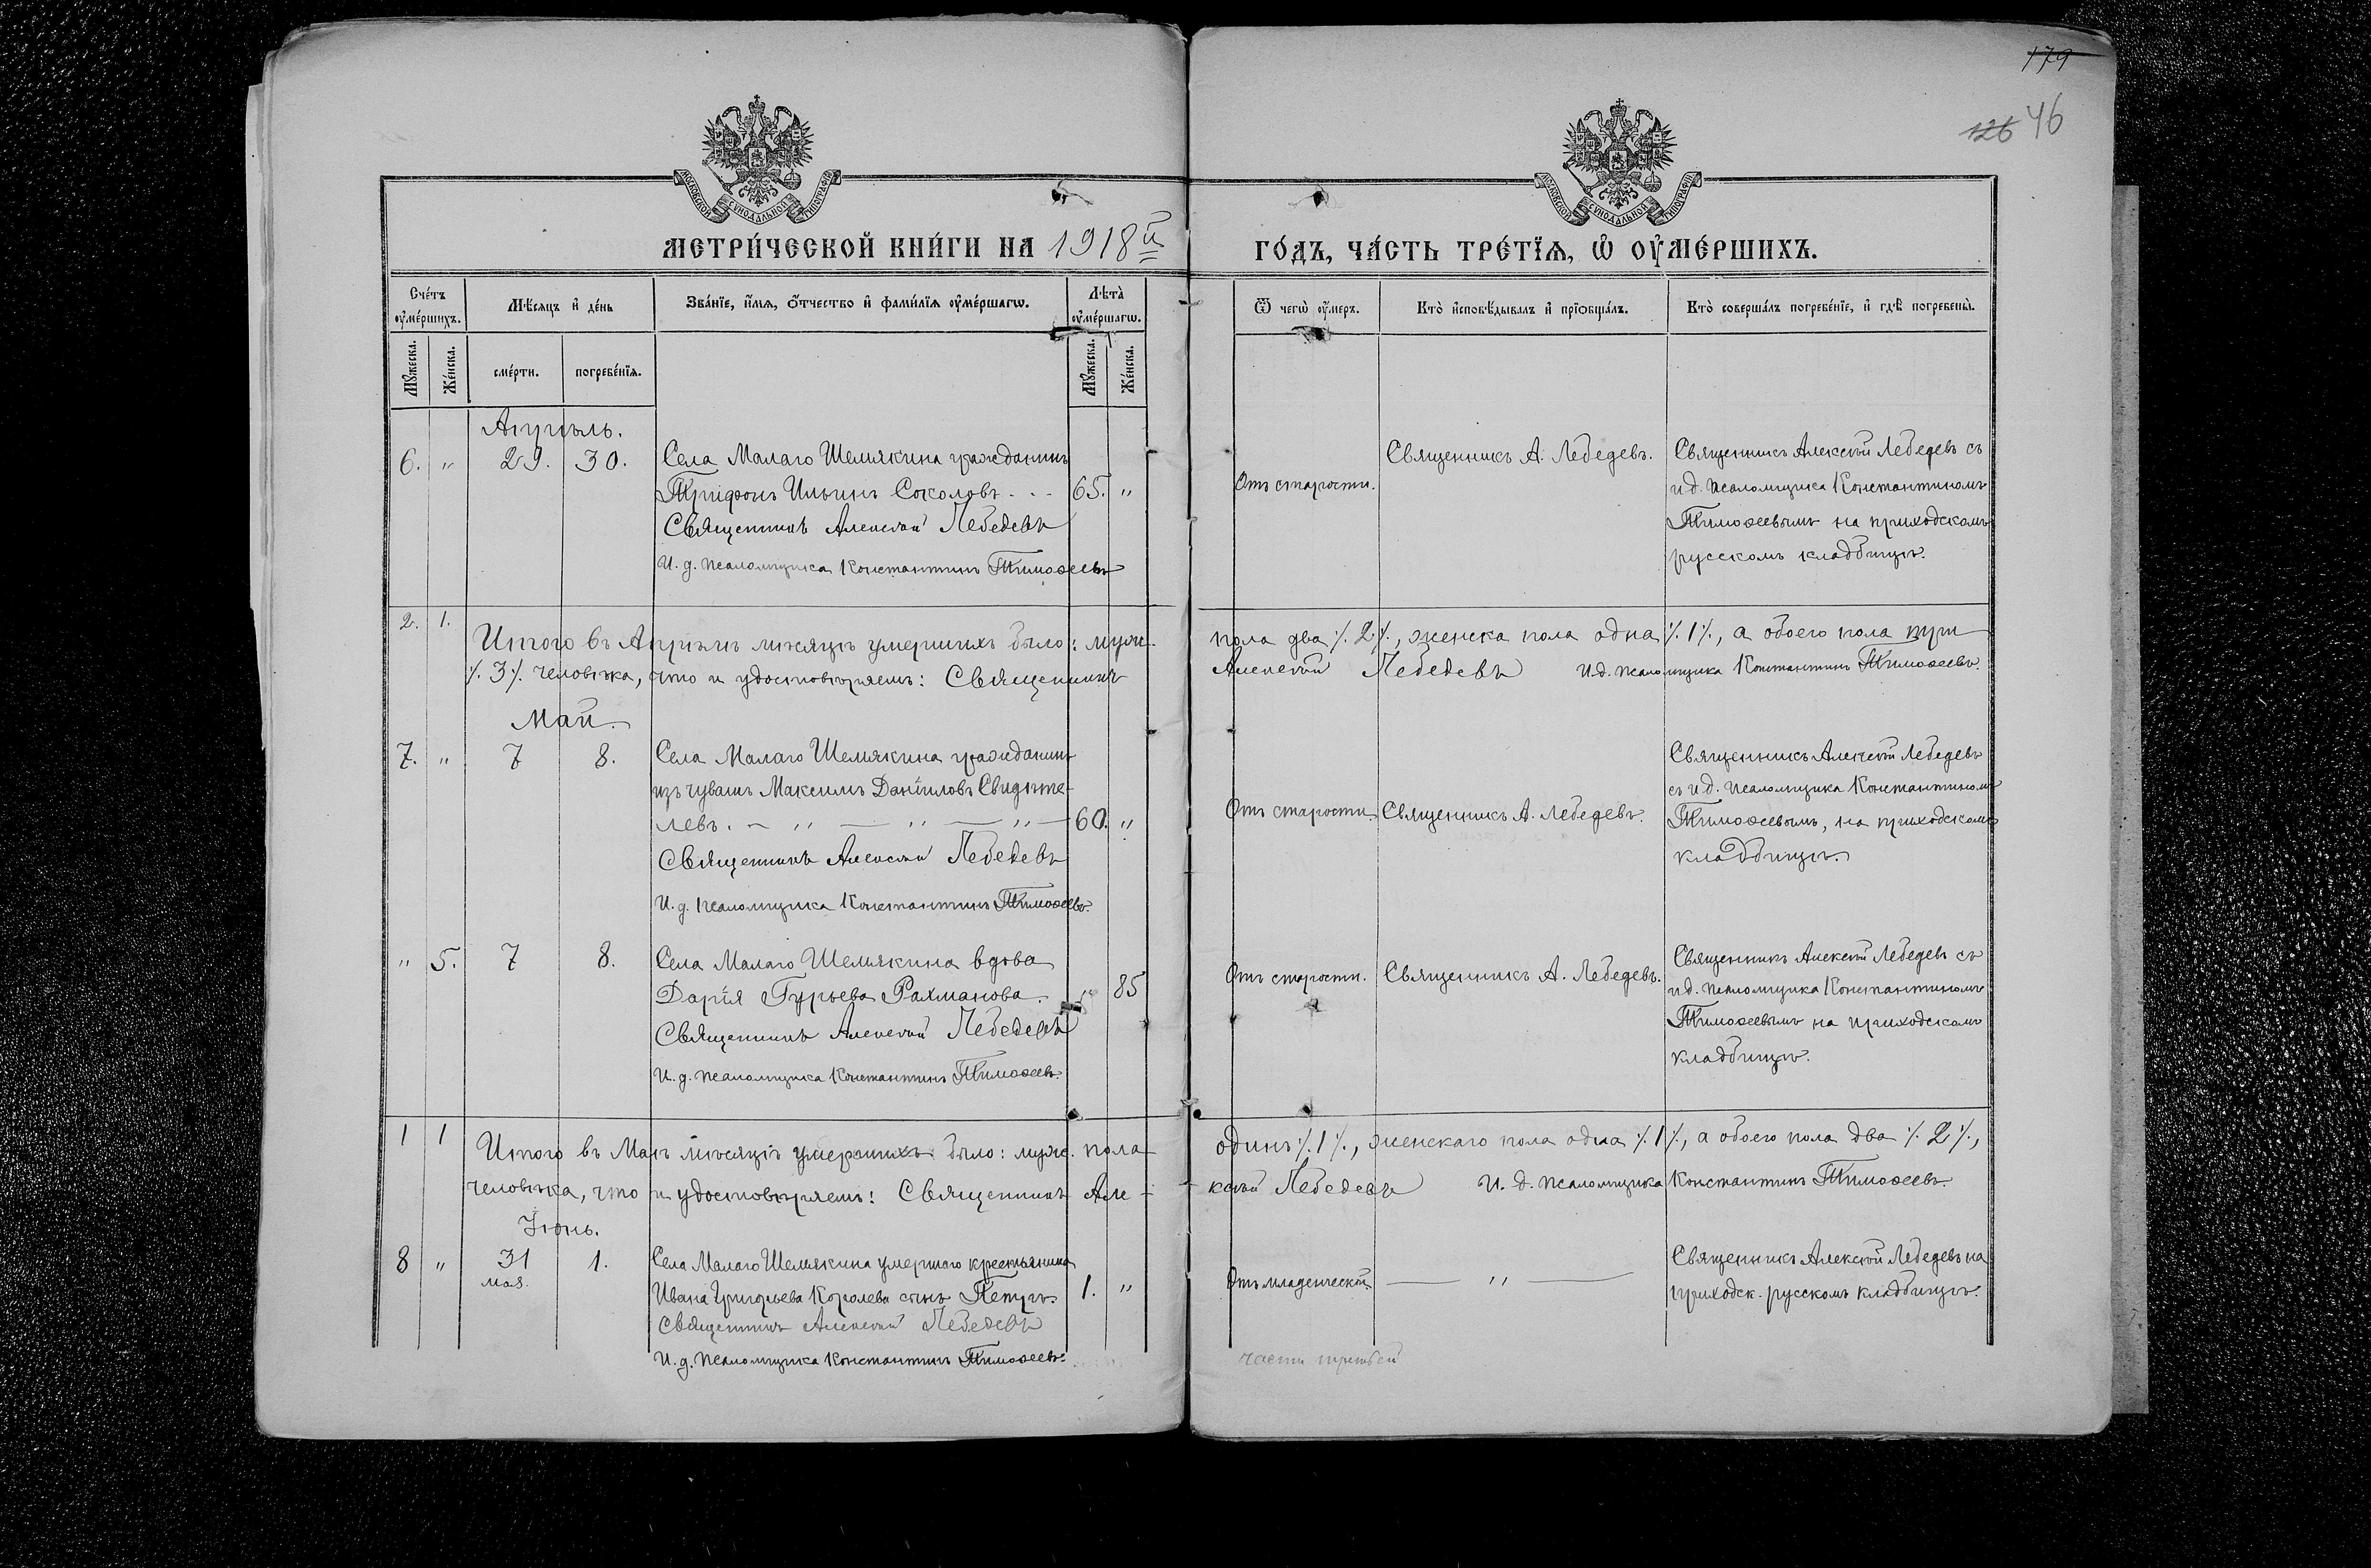 179
126 46
МОСКОВСКОЙ СѴНОДАЛЬНОЙ ТИПОГРАФІИ
МОСКОВСКОЙ СѴНОДАЛЬНОЙ ТИПОГРАФІИ
МЕТРИ́ЧЕСКОЙ КНИ́ГИ НА 1918й
ГО́ДЪ, ЧА́СТЬ ТРЕ́ТЇѦ, Ѡ҆ ОУ҆МЕ́РШИХЪ.
Сче́тъ оу҆ме́ршихъ.
Мѣ́сяцъ и҆ де́нь
Зва́нїе, и҆́мѧ, ѻ҆́тчество и҆ фами́лїѧ оу҆ме́ршагѡ.
Лѣта̀ оу҆ме́ршагѡ.
Ѿ чегѡ̀ оу҆́меръ.
Кто̀ и҆сповѣ́дывалъ и҆ прїѡбща́лъ.
Кто̀ соверша́лъ погребе́нїе, и҆ гдѣ̀ погребены̀.
Мꙋ́жеска.
Же́нска.
сме́рти.
погребе́нїѧ.
Мꙋ́жеска.
Же́нска.
Апрѣль.
6. " 29. 30. Села Малаго Шемякина гражданинъ
Трифонъ Ильинъ Соколовъ. - - 65. "
Священникъ Алексѣй Лебедевъ
И. д. псаломщика Константинъ Тимоѳеевъ
Отъ старости.
Священникъ А. Лебедевъ.
Священникъ Алексѣй Лебедевъ съ
и.д. псаломщика Константиномъ
Тимоѳеевымъ на приходскомъ
русскомъ кладбищѣ.
2. 1.
Итого въ Апрѣлѣ мѣсяцѣ умершихъ было: муж. пола два ٪ 2 ٪, женска пола одна ٪ 1 ٪, а обоего пола три
٪ 3 ٪ человѣка, что и удостовѣряемъ: Священникъ Алексѣй Лебедевъ И.д. псаломщика Константинъ Тимоѳеевъ.
Май.
7. " 7 8. Села Малаго Шемякина гражданинъ
изъ чувашъ Максимъ Даніиловъ Свидѣте-
левъ. - " - " - " - 60. "
Священникъ Алексѣй Лебедевъ
И. д. псаломщика Константинъ Тимоѳеевъ.
Отъ старости.
Священникъ А. Лебедевъ.
Священникъ Алексѣй Лебедевъ
съ и.д. псаломщика Константиномъ
Тимоѳеевымъ, на приходскомъ
кладбищѣ.
" 5. 7 8. Села Малаго Шемякина вдова
Дарія Гурьева Рахманова. " 85
Священникъ Алексѣй Лебедевъ
И. д. псаломщика Константинъ Тимоѳеевъ.
Отъ старости.
Священникъ А. Лебедевъ.
Священникъ Алексѣй Лебедевъ съ
и.д. псаломщика Константиномъ
Тимоѳеевымъ на приходскомъ
кладбищѣ.
1 1
Итого въ Маѣ мѣсяцѣ умершихъ было: муж. пола одинъ ٪ 1 ٪, женскаго пола одна ٪ 1 ٪, а обоего пола два ٪ 2 ٪,
человѣка, что и удостовѣряемъ: Священникъ Але-ксѣй Лебедевъ И. д. псаломщика Константинъ Тимоѳеевъ.
Іюнь.
8 " 31 1. Села Малаго Шемякина умершаго крестьянина
мая. Ивана Григорьева Королева сынъ Петръ. 1. "
Священникъ Алексѣй Лебедевъ
И. д. псаломщика Константинъ Тимоѳеевъ.
Отъ младенческой.
— " —
Священникъ Алексѣй Лебедевъ на
приходск. русскомъ кладбищѣ.
части третьей